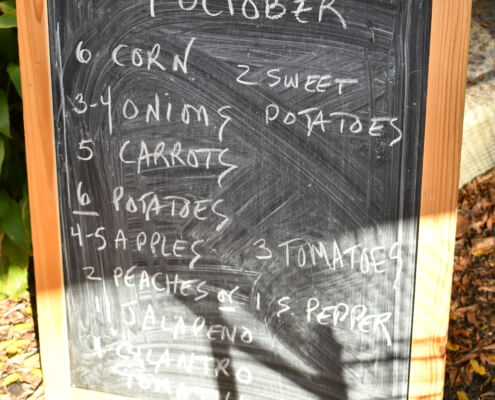 OCTOBER
6 CORN
2 SWEET POTATOES
3-4 ONIONS
5 CARROTS
6 POTATOES
4-5 APPLES
3 TOMATOES
2 PEACHES or 1 S. PEPPER
1 JALAPENO
1 CILANTRO